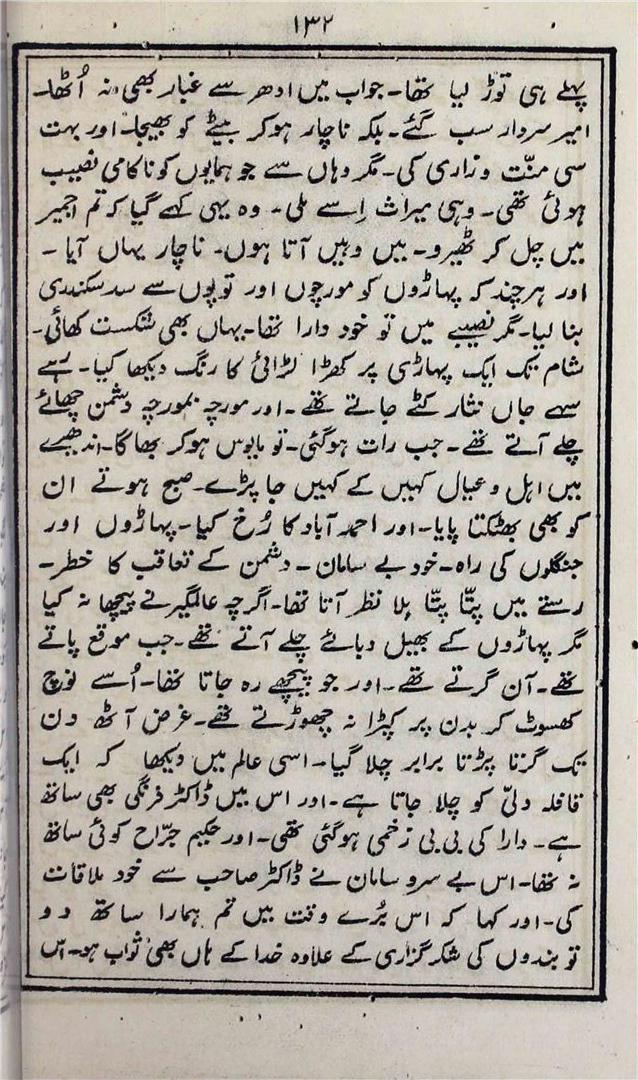 ۱۳۲
پہلے ہی توڑ لیا تھا۔ جواب میں ادھر سے غبار بھی نہ اُٹھا۔
امیر سردار سب گئے۔ بلکہ ناچار ہوکر بیٹے کو بھیجا۔ اور بہت
سی منّت و زاری کی۔ مگر وہاں سے جو ہمایوں کو ناکامی نصیب
ہوئی تھی۔ وہی میراث اِسے ملی۔ وہ یہی کہے گیا کہ تم اجمیر
میں چل کر ٹھیرو۔ میں وہیں آتا ہوں۔ ناچار یہاں آیا۔
اور ہر چند کہ پہاڑوں کو مورچوں اور توپوں سے سد سکندری
بنا لیا۔ مگر نصیبے میں تو خود دارا تھا۔ یہاں بھی شکست کھائی۔
شام تک ایک پہاڑی پر کھڑا لڑائی کا رنگ دیکھا کیا۔ رہے
سہے جاں نثار کٹے جاتے تھے۔ اور مورچہ بمورچہ دشمن چھائے
چلے آتے تھے۔ جب رات ہوگئی۔ تو مایوس ہوکر بھاگا۔ اندھیرے
میں اہل و عیال کہیں کے کہیں جا پڑے۔ صبح ہوتے ان
کو بھی بھٹکتا پایا۔ اور احمد آباد کا رُخ کیا۔ پہاڑوں اور
جنگلوں کی راہ۔ خود بے سامان۔ دشمن کے تعاقب کا خطر۔
رستے میں پتّا پتّا بلا نظر آتا تھا۔ اگرچہ عالمگیر نے پیچھا نہ کیا
مگر پہاڑوں کے بھیل دبائے چلے آتے تھے۔ جب موقع پاتے
تھے۔ آن گرتے تھے۔ اور جو پیچھے رہ جاتا تھا۔ اُسے نوچ
کھسوٹ کر بدن پر کپڑا نہ چھوڑتے تھے۔ غرض آٹھ دن
تک گرتا پڑتا برابر چلا گیا۔ اسی عالم میں دیکھا کہ ایک
قافلہ دلّی کو چلا جاتا ہے۔ اور اس میں ڈاکٹر فرنگی بھی ساتھ
ہے۔ دارا کی بی بی زخمی ہوگئی تھی۔ اور حکیم جرّاح کوئی ساتھ
نہ تھا۔ اس بے سرو سامان نے ڈاکٹر صاحب سے خود ملاقات
کی۔ اور کہا کہ اس بُرے وقت میں تم ہمارا ساتھ دو
تو بندوں کی شکر گزاری کے علاوہ خدا کے ہاں بھی ثواب ہو۔ اس